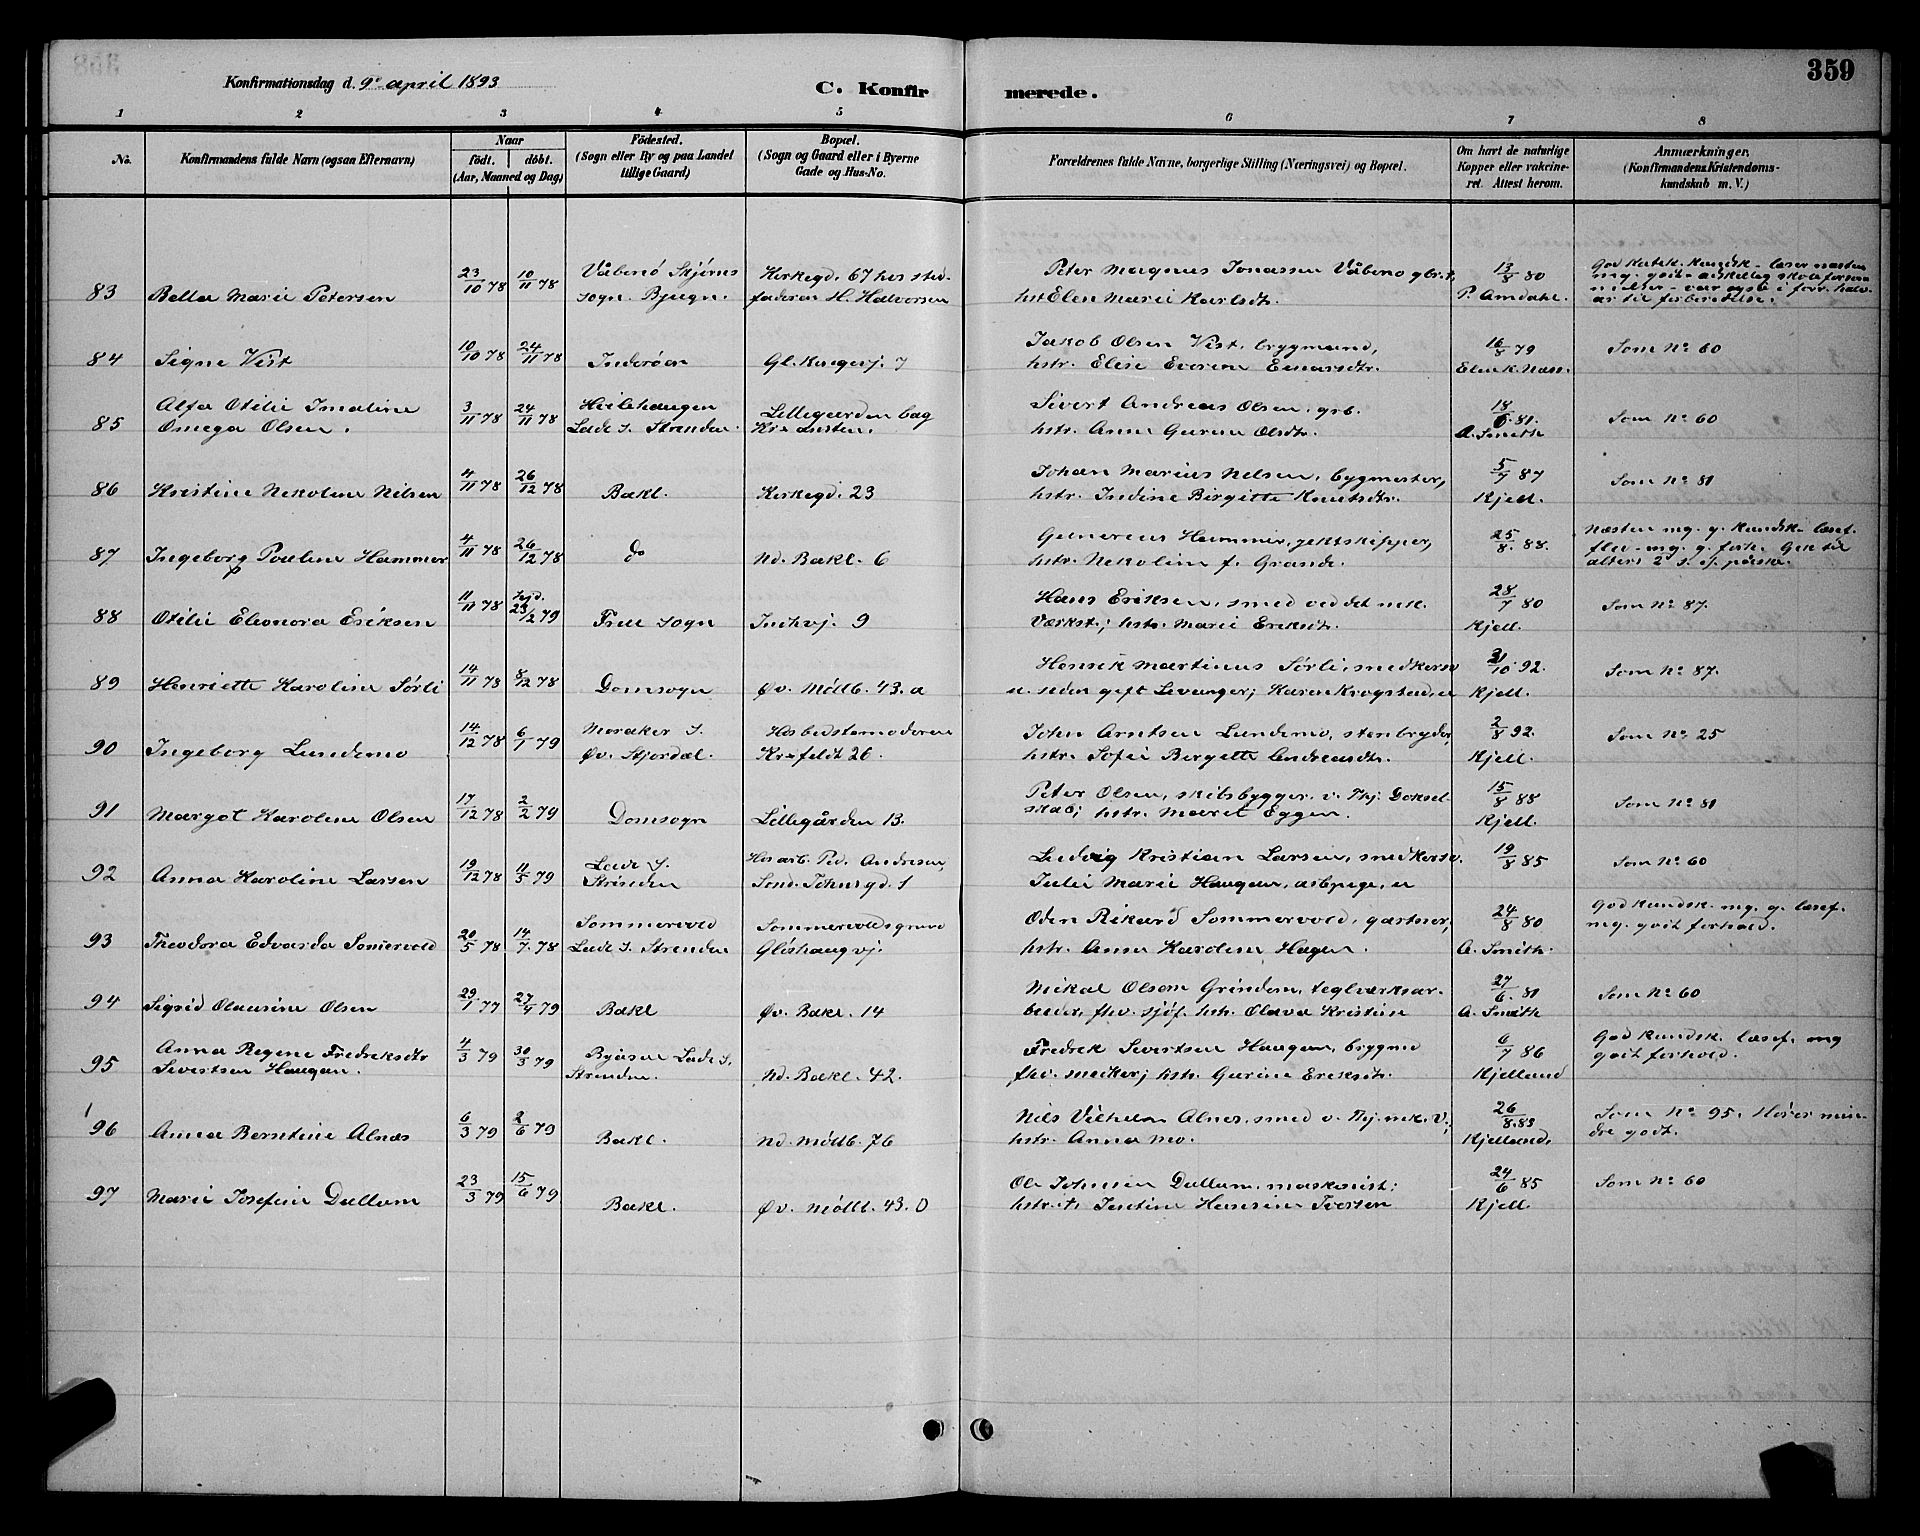 359
Konfirmationsdag d. 9de april 1893
C. Konfirmerede.
1 2 3 4 5 6 7 8
No. Konfirmandens fulde Navn (ogsaa Efternavn) Naar födt. döbt. (Aar, Maaned og Dag) Födested. (Sogn eller By og paa Landet tillige Gaard) Bopæl. (Sogn og Gaard eller i Byerne Gade og Hus-No. Forældrenes fulde Navne, borgerlige Stilling (Næringsvei) og Bopæl. Om havt de naturlige Kopper eller vakcineret. Attest herom. Anmærkninger. (Konfirmandens Kristendomskundskab m. V.)
83 Bella Marie Petersen 23/10 78 10/11 78 Våbenö Skjörns sogn. Bjugn. Kirkegd. 67 hos stedfaderen H. Halvorsen Peter Magnus Jonassen Våbenö gbr. hst Elen Marie Karlsdtr. 13/8 80 P. Amdahl.
84 Signe Vist 10/10 78 24/11 78 Inderöen Gl. Kongevj. 7 Jakob Olsen Vist, brygmand, hstr. Elise Everine Einarsdtr. 16/8 79 Elen K. Næss. Som No 60
85 Alfa Otilie Imaline Omega Olsen. 3/11 78 24/11 78 Lade S. Strinden. Lillegaarden bag Kr-ansten. Sivert Andreas Olsen, grb. hstr. Anne Gurine Olsdtr. 18/6 81. A. Smith Som No 60
86 Kristine Nekoline Nilsen 4/11 78 26/12 78 Bakl. Kirkegd. 23 Johan Marius Nilsen, bygmester, hstr. Indine Birgitte Knutsdtr. 5/7 87 Kjell. Som No 81
87 Ingeborg Pauline Hammer 4/11 78 26/12 78 do Nd. Bakl. 6 Gunerius Hammer, jektskipper, hstr. Nekoline f. Grande. 25/8. 88. Næsten mg. g. kundsk. læsef. flev- mg. g. forh. Gik til alters 2 s. e/ påske.
88 Otilie Eleonora Eriksen 11/11 78 hjd. 23/2 79 Frue sogn Indhvj. 9 Hans Eriksen, smed ved det mek. Værkst.; hstr. Marie Eriksdtr. 28/7 80 Kjell. Som No 87.
89 Henriette Karoline Sörli 14/11 78 8/12 78 Domsogn Øv. Möllb. 43. a Henrik Martinus Sörli, smedkersv u. siden gift Levanger; Karen Krogstad, u Kjell. Som No 87.
90 Ingeborg Lundemo 14/12 78 6/1 79 Meraker S. Øv. Stjordal. Hos bedstemoderen Kr-feldt 26. John Arntsen Lundemo, stenbryder, hstr. Sofie Bergette Andreasdtr. 2/8 92. Kjell. Som No 25
91 Margot Karoline Olsen 17/12 78 2/2 79 Domsogn Lillegården 13. Peter Olsen, skibsbygger v. Thj. Dokselskab; hstr. Marit Eggen. 15/8 88 Kjell. Som No 81
92 Anna Karoline Larsen 19/12 78 11/5 79 Lade S. Strinden Hos arb. Ped. Andresen, Sönd. Johnsgd. 1 Ludvig Kristian Larsen, smedkersv. Julie Marie Haugan, arbpige, u 19/8 85 Som No 60
93 Theodora Edvarda Somervold 20/5 78 14/7. 78 Sommervold Lade S. Strinden Sommervoldsgrund Glöshaugvj. Oden Rikard Sommervold, gartner; hstr. Anna Karoline Hagen. 24/8 80 A. Smith. God kundsk. mg. g. læsef. mg. godt forhold.
94 Sigrid Olausine Olsen 29/1 77 27/4 79 Bakl Øv. Bakl. 14 Mikal Olsen Grindem, teglværksarbeider, fhv. sjöf. hst. Olava Kristine 27/6. 81 A. Smith Som No 60
95 Anna Regine Fredriksdtr Sivertsen Haugan. 4/3 79 30/3 79 Byåsen Lade S. Strinden. Nd. Bakl. 42. Fredrik Sivertsen Haugan, brygmd fhv. snedker; hstr. Gurine Eriksdtr. 6/7 86 Kjelland God kundsk. læsef. mg godt forhold.
96 Anna Berntine Alnæs 6/3 79 2/6 79 Bakl. Nd. Möllb. 76 Nils Vilhelm Alnes, smed v. Thj. mk. V.; hstr. Anna Mo. 26/8. 83 Kjelland, Som No 95. Hörer mindre godt.
97 Marie Josefine Dullum 23/3 79 15/6 79 Bakl. Øv. Möllb. 43. D Ole Johnsen Dullum, maskinist; hstr. Justine Hansine Iversen 24/6 85 Kjell. Som No 60